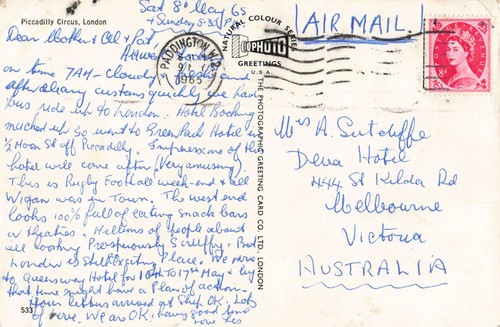 Piccadilly Circus, London
Sat 8th May 65
+ Sunday 5.30
Dear Mother & Cel & Pat
Arrived
on time 7AM - Cloudy
after
customs quickly we had
bus ride up to London. Hotel Booking
mucked up so went to Green Park Hotel in
½ Moon St off Piccadilly. Impressions of this
hotel will come after (Very amusing).
This is Rugby Football week-end & all
Wigan was in Town. The west end
looks 100% full of eating snack bars
or theatres. Millions of people about
all looking Prosperously Scruffy. But
London is still Exciting Place. We move
to Queensway Hotel for 10th to 17th May & by
that time might have a Plan of action.
Your letters arrived at Ship OK. Lots
of love. We are OK, having good time
Love Les
533
NATURAL COLOUR SERIES
PHOTO
GREETINGS
U.S.A.
THE PHOTOGRAPHIC GREETING CARD CO. LTD., LONDON
PADDINGTON W.2
1965
AIR MAIL
8D
Mrs A. Sutcliffe
Deva Hotel
444 St Kilda Rd
Melbourne
Victoria
AUSTRALIA